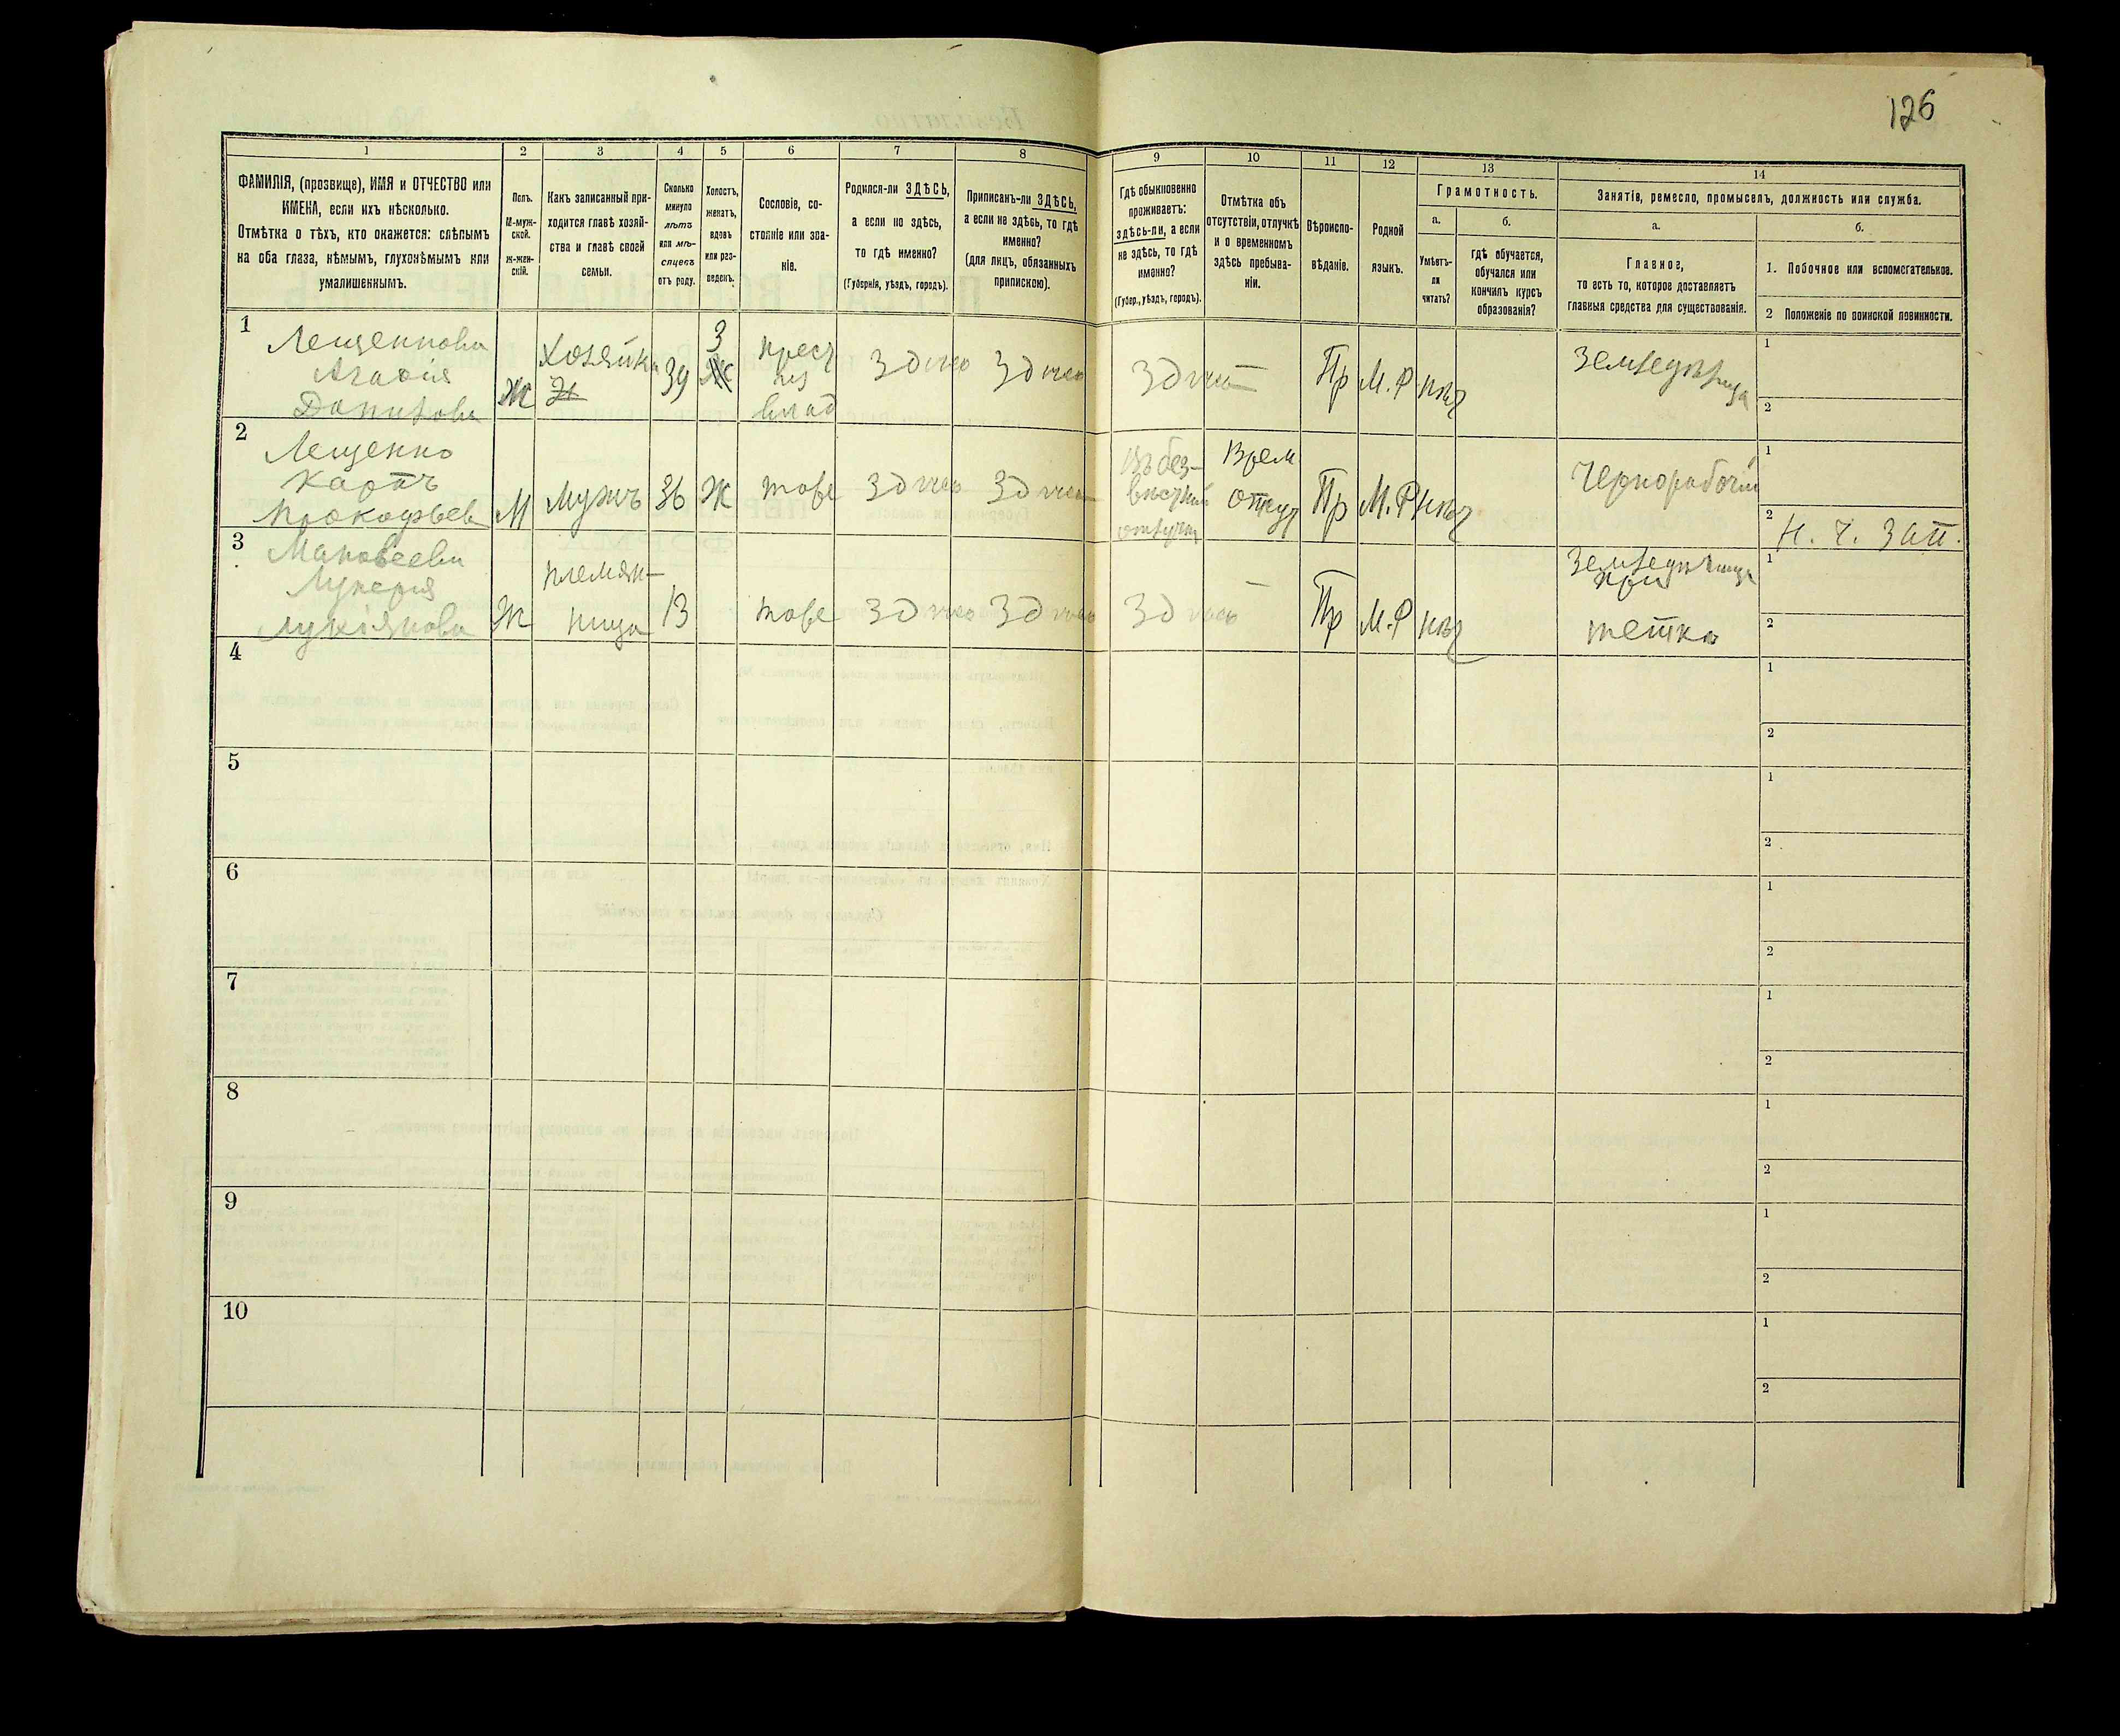 126
1
2
3
4
5
6
7
8
9
10
11
12
13
14
ФАМИЛІЯ, (прозвище), ИМЯ и ОТЧЕСТВО или
ИМЕНА, если ихъ нѣсколько.
Отмѣтка о тѣхъ, кто окажется: слѣпымъ
на оба глаза, нѣмымъ, глухонѣмымъ или
умалишеннымъ.
Полъ.
М-муж-
ской.
Ж-жен-
скій.
Какъ записанный при-
ходится главѣ хозяй-
ства и главѣ своей
семьи.
Сколько
минуло
лѣтъ
или мѣ-
сяцевъ
отъ роду.
Холостъ,
женатъ,
вдовъ
или раз-
веденъ.
Сословіе, со-
стояніе или зва-
ніе.
Родился-ли ЗДѢСЬ,
а если не здѣсь,
то гдѣ именно?
(Губернія, уѣздъ, городъ).
Приписанъ-ли ЗДѢСЬ,
а если не здѣсь, то гдѣ
именно?
(для лицъ, обязанныхъ
припискою).
Гдѣ обыкновенно
проживаетъ:
здѣсь-ли, а если
не здѣсь, то гдѣ
именно?
(Губер., уѣздъ, городъ).
Отмѣтка объ
отсутствіи, отлучкѣ
и о временномъ
здѣсь пребыва-
ніи.
Вѣроиспо-
вѣданіе.
Родной
языкъ.
Грамотность.
а.
Умѣетъ-
ли
читать?
б.
гдѣ обучается,
обучался или
кончилъ курсъ
образованія?
Занятіе, ремесло, промыселъ, должность или служба.
а.
Главное,
то есть то, которое доставляетъ
главныя средства для существованія.
б.
1. Побочное или вспомогательное.
2 Положеніе по воинской повинности.
1
Лещенкова
Агафія
Данилова
Ж
Хозяйка
39
З
Ж
здѣсь
здѣсь
здѣсь
Пр
М.Р
нѣт
1
2
2
Лещенко
Карпъ
Прокофьевъ
М
Мужъ
36
Ж
тоже
здѣсь
здѣсь
Въ без-
вѣстной
отлучкѣ
Врем
отлуч
Пр
М.Р
нѣт
Чернорабочій
1
2 Н. Ч. Зап.
3
Матвеева
Лукерія
Лукіянова
Ж
племян-
ница
13
тоже
здѣсь
здѣсь
здѣсь
Пр
М.Р
нѣт
при
тетке
1
2
4
1
2
5
1
2
6
1
2
7
1
2
8
1
2
9
1
2
10
1
2